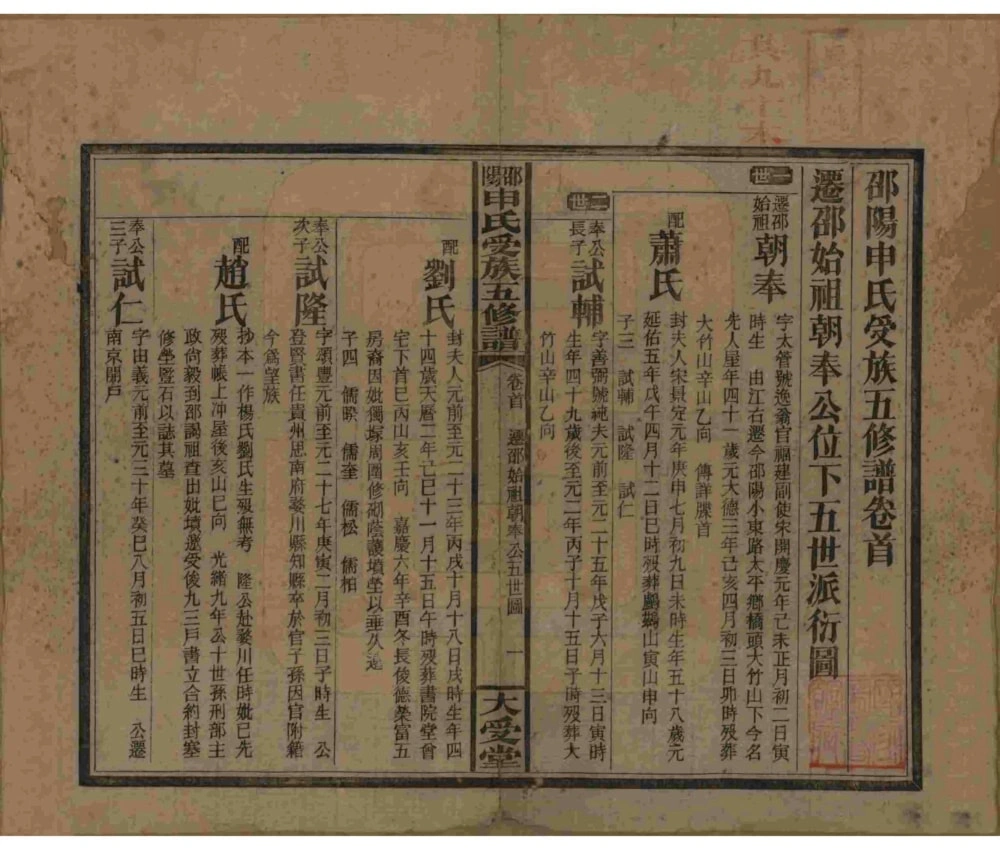 邵陽申氏受族五修譜卷首
遷邵始祖朝奉公位下五世派衍圖
一世
遷邵始祖朝奉
字太管號逸翁官福建副使宋開慶元年己未正月初二日寅
時生 由江右遷今邵陽小東路太平鄉橋頭大竹山下今名
先人屋年四十一歲元大德三年己亥四月初三日卯時歿葬
大竹山辛山乙向 傳詳牒首
配蕭氏
封夫人宋景定元年庚申七月初九日未時生年五十八歲元
延佑五年戊午四月十二日巳時歿葬鸕鷀山寅山申向
子三 試輔 試隆 試仁
二世
奉公長子試輔
字善弼號祂夫元前至元二十五年戊子六月十三日寅時
生年四十九歲後至元二年丙子十月十五日子時歿葬大
竹山辛山乙向
邵陽申氏受族五修譜 卷首 遷邵始祖朝奉公五世圖 一 大受堂
配劉氏
封夫人元前至元二十三年丙戌十月十八日戌時生年四
十四歲天曆二年己巳十一月十五日午時歿葬書院堂曾
宅下首巳丙山亥壬向 嘉慶六年辛酉冬長陵德榮富五
房裔因妣獨塚周圍修砌蔭護墳塋以垂久遠
子四 儒睽 儒奎 儒松 儒柏
奉公次子試隆
字頌豐元前至元二十七年庚寅二月初三日子時生 公
登賢書任貴州思南府婺川縣知縣卒於官子孫因官附籍
今爲望族
配趙氏
抄本一作楊氏劉氏生歿無考 隆公赴婺川任時妣已先
歿葬帳上冲屋後亥山巳向 光緒九年公十世孫刑部主
政尚毅到邵謁祖查出妣墳邀受後九三戶書立合約封塞
修塋豎石以誌其墓
奉公三子試仁
字由義元前至元三十年癸巳八月初五日巳時生 公遷
南京開戶